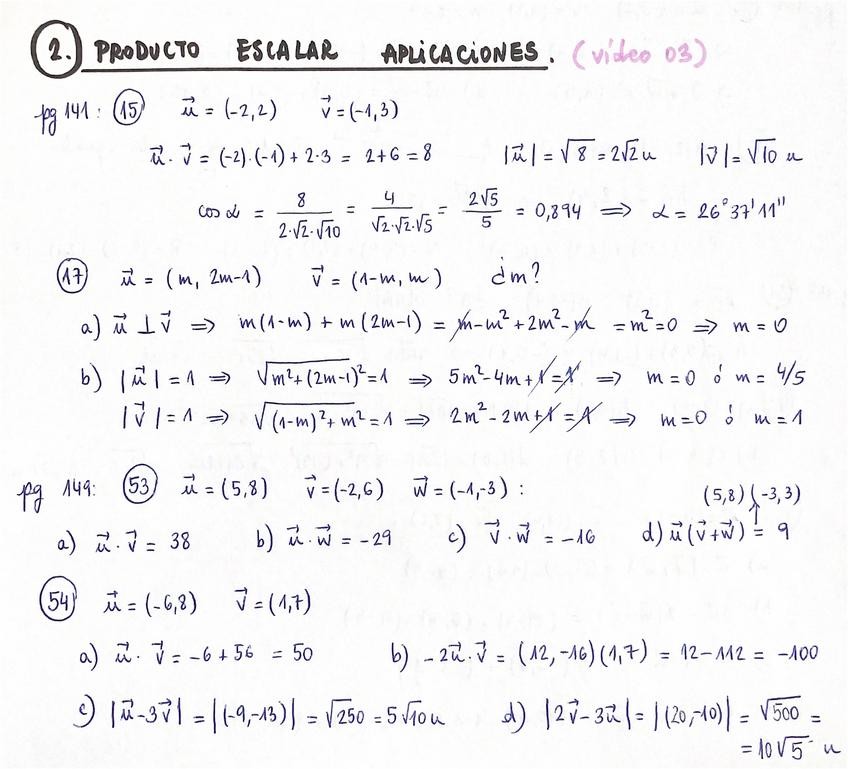 2. PRODUCTO ESCALAR APLICACIONES. (vídeo 03)
pg 141: 15 u⃗ = (-2,2) v⃗ = (-1,3)
u⃗ · v⃗ = (-2)·(-1) + 2·3 = 2+6 = 8 |u⃗| = √8 = 2√2 u |v⃗| = √10 u
cos α = 8/(2·√2·√10) = 4/(√2·√2·√5) = 2√5/5 = 0,894 ⇒ α = 26°37'11"
17 u⃗ = (m, 2m-1) v⃗ = (1-m, m) ¿m?
a) u⃗ ⊥ v⃗ ⇒ m(1-m) + m(2m-1) = m - m² + 2m² - m = m² = 0 ⇒ m = 0
b) |u⃗| = 1 ⇒ √(m²+(2m-1)²) = 1 ⇒ 5m² - 4m + 1 = 1 ⇒ m = 0 ó m = 4/5
|v⃗| = 1 ⇒ √((1-m)² + m²) = 1 ⇒ 2m² - 2m + 1 = 1 ⇒ m = 0 ó m = 1
pg 149: 53 u⃗ = (5,8) v⃗ = (-2,6) w⃗ = (-1,-3) :
(5,8) (-3,3)
a) u⃗ · v⃗ = 38 b) u⃗ · w⃗ = -29 c) v⃗ · w⃗ = -16 d) u⃗ (v⃗ + w⃗) = 9
54 u⃗ = (-6,8) v⃗ = (1,7)
a) u⃗ · v⃗ = -6 + 56 = 50 b) -2u⃗ · v⃗ = (12,-16)(1,7) = 12 - 112 = -100
c) |u⃗ - 3v⃗| = |(-9,-13)| = √250 = 5√10 u d) |2v⃗ - 3u⃗| = |(20,-10)| = √500 =
= 10√5 u